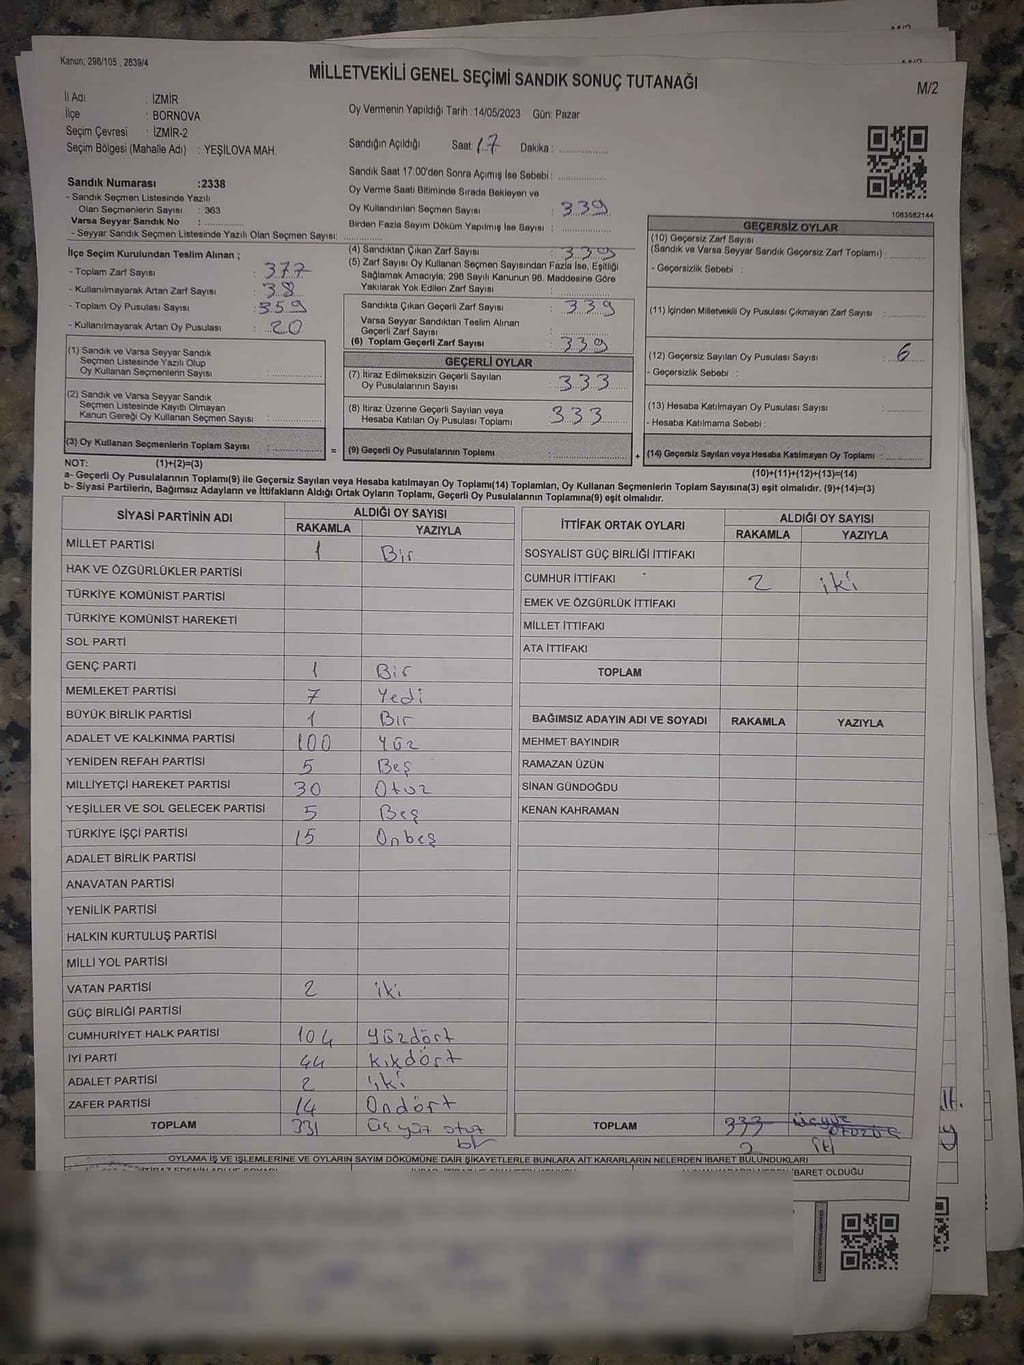 Kanun, 298/105 , 2839/4
MİLLETVEKİLİ GENEL SEÇİMİ SANDIK SONUÇ TUTANAĞI
M/2
İl Adı : İZMİR
İlçe : BORNOVA
Seçim Çevresi : İZMİR-2
Seçim Bölgesi (Mahalle Adı) : YEŞİLOVA MAH.
Oy Vermenin Yapıldığı Tarih : 14/05/2023 Gün: Pazar
Sandığın Açıldığı Saat: 17 Dakika : ..............
Sandık Saat 17:00'den Sonra Açımış İse Sebebi : ..............
Oy Verme Saati Bitiminde Sırada Bekleyen ve
Oy Kullandırılan Seçmen Sayısı : 339
Birden Fazla Sayım Döküm Yapılmış İse Sayısı : ..............
Sandık Numarası :2338
- Sandık Seçmen Listesinde Yazılı
Olan Seçmenlerin Sayısı : 363
Varsa Seyyar Sandık No : ..............
- Seyyar Sandık Seçmen Listesinde Yazılı Olan Seçmen Sayısı: ..............
İlçe Seçim Kurulundan Teslim Alınan ;
- Toplam Zarf Sayısı : 377
- Kullanılmayarak Artan Zarf Sayısı : 38
- Toplam Oy Pusulası Sayısı : 359
- Kullanılmayarak Artan Oy Pusulası : 20
(1) Sandık ve Varsa Seyyar Sandık
Seçmen Listesinde Yazılı Olup
Oy Kullanan Seçmenlerin Sayısı : ..............
(2) Sandık ve Varsa Seyyar Sandık
Seçmen Listesinde Kayıtlı Olmayan
Kanun Gereği Oy Kullanan Seçmen Sayısı : ..............
(3) Oy Kullanan Seçmenlerin Toplam Sayısı : ..............
(4) Sandıktan Çıkan Zarf Sayısı : 339
(5) Zarf Sayısı Oy Kullanan Seçmen Sayısından Fazla İse, Eşitliği
Sağlamak Amacıyla; 298 Sayılı Kanunun 98. Maddesine Göre
Yakılarak Yok Edilen Zarf Sayısı : ..............
Sandıkta Çıkan Geçerli Zarf Sayısı : 339
Varsa Seyyar Sandıktan Teslim Alınan
Geçerli Zarf Sayısı : ..............
(6) Toplam Geçerli Zarf Sayısı : 339
GEÇERLİ OYLAR
(7) İtiraz Edilmeksizin Geçerli Sayılan
Oy Pusulalarının Sayısı : 333
(8) İtiraz Üzerine Geçerli Sayılan veya
Hesaba Katılan Oy Pusulası Toplamı : 333
= (9) Geçerli Oy Pusulalarının Toplamı : .............. +
1083582144
GEÇERSİZ OYLAR
(10) Geçersiz Zarf Sayısı
(Sandık ve Varsa Seyyar Sandık Geçersiz Zarf Toplamı) : ..............
- Geçersizlik Sebebi :
(11) İçinden Milletvekili Oy Pusulası Çıkmayan Zarf Sayısı : ..............
(12) Geçersiz Sayılan Oy Pusulası Sayısı : 6
- Geçersizlik Sebebi :
(13) Hesaba Katılmayan Oy Pusulası Sayısı : ..............
- Hesaba Katılmama Sebebi :
(14) Geçersiz Sayılan veya Hesaba Katılmayan Oy Toplamı : ..............
NOT: (1)+(2)=(3) (10)+(11)+(12)+(13)=(14)
a- Geçerli Oy Pusulalarının Toplamı(9) ile Geçersiz Sayılan veya Hesaba katılmayan Oy Toplamı(14) Toplamları, Oy Kullanan Seçmenlerin Toplam Sayısına(3) eşit olmalıdır. (9)+(14)=(3)
b- Siyasi Partilerin, Bağımsız Adayların ve İttifakların Aldığı Ortak Oyların Toplamı, Geçerli Oy Pusulalarının Toplamına(9) eşit olmalıdır.
SİYASİ PARTİNİN ADI ALDIĞI OY SAYISI
RAKAMLA YAZIYLA
MİLLET PARTİSİ 1 Bir
HAK VE ÖZGÜRLÜKLER PARTİSİ
TÜRKİYE KOMÜNİST PARTİSİ
TÜRKİYE KOMÜNİST HAREKETİ
SOL PARTİ
GENÇ PARTİ 1 Bir
MEMLEKET PARTİSİ 7 Yedi
BÜYÜK BİRLİK PARTİSİ 1 Bir
ADALET VE KALKINMA PARTİSİ 100 Yüz
YENİDEN REFAH PARTİSİ 5 Beş
MİLLİYETÇİ HAREKET PARTİSİ 30 Otuz
YEŞİLLER VE SOL GELECEK PARTİSİ 5 Beş
TÜRKİYE İŞÇİ PARTİSİ 15 Onbeş
ADALET BİRLİK PARTİSİ
ANAVATAN PARTİSİ
YENİLİK PARTİSİ
HALKIN KURTULUŞ PARTİSİ
MİLLİ YOL PARTİSİ
VATAN PARTİSİ 2 iki
GÜÇ BİRLİĞİ PARTİSİ
CUMHURİYET HALK PARTİSİ 104 yüzdört
İYİ PARTİ 44 kıkdört
ADALET PARTİSİ 2 iki
ZAFER PARTİSİ 14 Ondört
TOPLAM 331 üç yüz otuz bir
İTTİFAK ORTAK OYLARI ALDIĞI OY SAYISI
RAKAMLA YAZIYLA
SOSYALİST GÜÇ BİRLİĞİ İTTİFAKI
CUMHUR İTTİFAKI 2 iki
EMEK VE ÖZGÜRLÜK İTTİFAKI
MİLLET İTTİFAKI
ATA İTTİFAKI
TOPLAM
BAĞIMSIZ ADAYIN ADI VE SOYADI RAKAMLA YAZIYLA
MEHMET BAYINDIR
RAMAZAN ÜZÜN
SİNAN GÜNDOĞDU
KENAN KAHRAMAN
TOPLAM 333 üçyüz otuzüç
2 iki
OYLAMA İŞ VE İŞLEMLERİNE VE OYLARIN SAYIM DÖKÜMÜNE DAİR ŞİKAYETLERLE BUNLARA AİT KARARLARIN NELERDEN İBARET BULUNDUKLARI
İBARET OLDUĞU